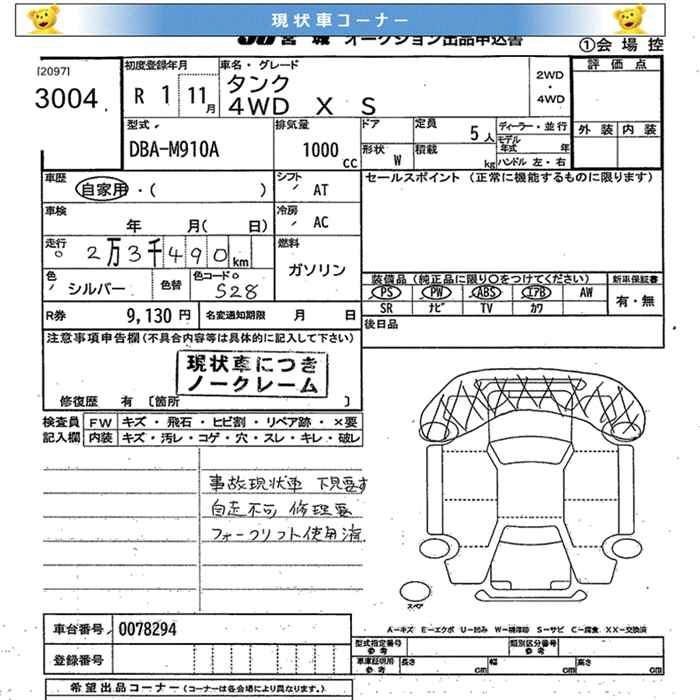 現状車コーナー
JU宮城 オークション出品申込書
①会場控
[2097]
3004
初度登録年月
R 1 11月
車名・グレード
タンク
4WD X S
2WD
・
4WD
評価点
外装 内装
型式
DBA-M910A
排気量
1000cc
ドア
形状 W
定員 5人
積載 kg
ディーラー・並行
モデル年式 年
ハンドル 左・右
車歴
自家用・( )
シフト AT
セールスポイント (正常に機能するものに限ります)
車検
年 月( 日)
冷房 AC
走行
2万3千490km
燃料
ガソリン
色
シルバー
色替
色コードo
S28
装備品 (純正品に限り○をつけてください)
新車保証書
PS PW ABS エアB AW
有・無
SR ナビ TV カワ
R券 9,130円
名変通知期限 月 日
後日品
注意事項申告欄 (不具合内容等は具体的に記入して下さい)
現状車につき
ノークレーム
修復歴 有 〔箇所 〕
検査員 FW キズ・飛石・ヒビ割・リペア跡・×要
記入欄 内装 キズ・汚レ・コゲ・穴・スレ・キレ・破レ
事故現状車 下見要す
自走不可 修理要
フォークリフト使用済
スペア
車台番号 0078294
A-キズ E-エクボ U-凹み W-補修跡 S-サビ C-腐食 XX-交換済
登録番号
型式指定番号 参考
類別区分番号 参考
車庫証明用 参考
長さ cm 幅 cm 高さ cm
希望出品コーナー (コーナーは各会場により異なります。)